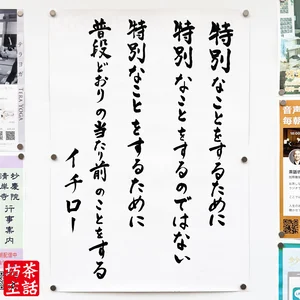 特別なことをするために
特別なことをするのではない
特別なことをするために
普段どおりの当たり前のことをする
イチロー
音声
毎朝
TERA YOGA
テラヨガ
妙慶院
清岸寺
行事案内
茶話
坊主